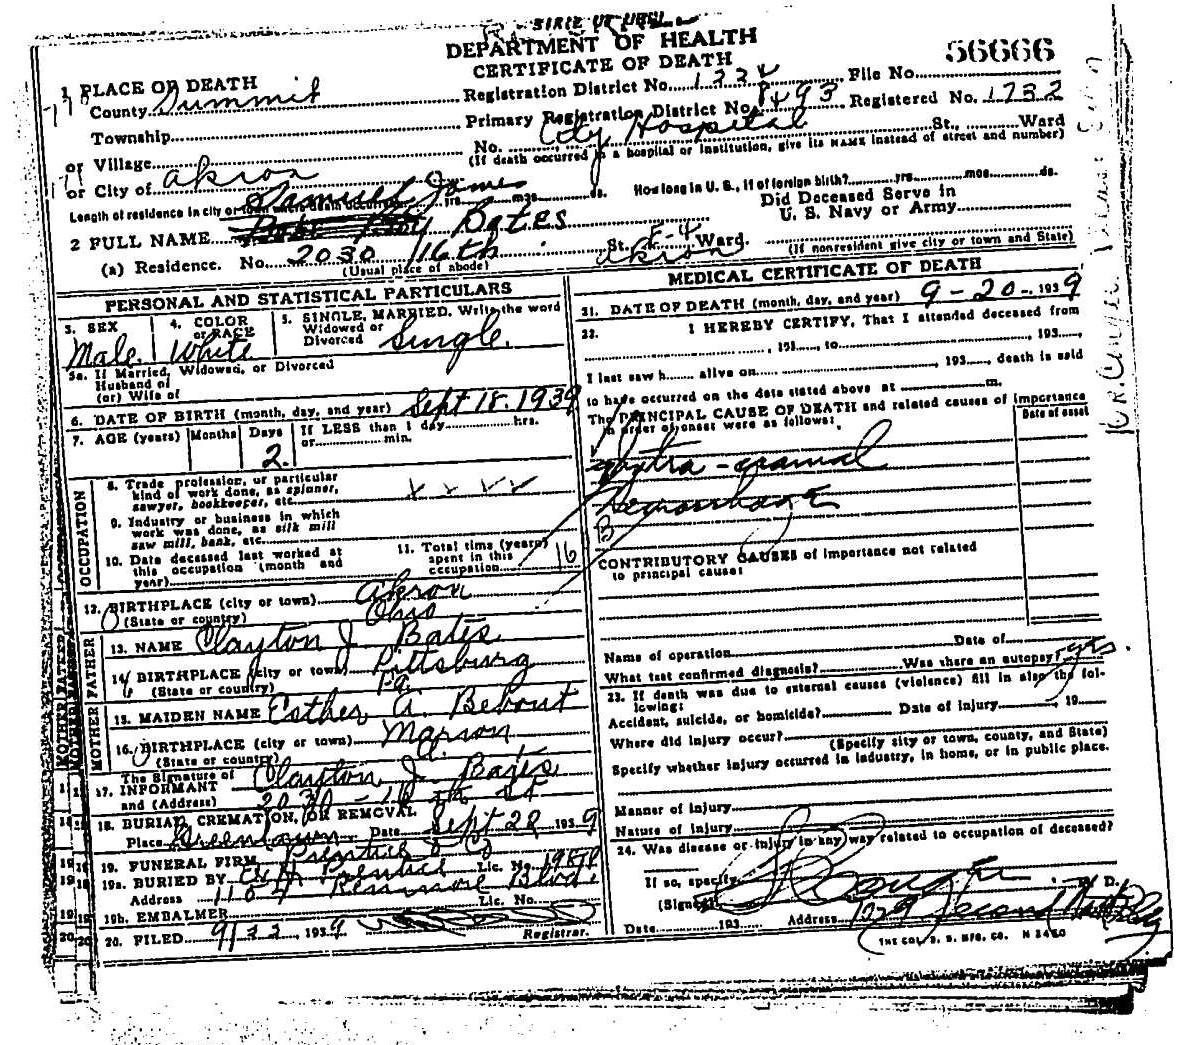 STATE OF OHIO
DEPARTMENT OF HEALTH
CERTIFICATE OF DEATH
56666
1 PLACE OF DEATH
County Summit Registration District No. 1224 File No.
Township Primary Registration District No. 8493 Registered No. 1732
or Village No. City Hospital St., Ward
(If death occurred in a hospital or institution, give its NAME instead of street and number)
or City of Akron
Length of residence in city or town where death occurred yrs. mos. ds. How long in U. S., if of foreign birth? yrs. mos. ds.
Samuel James
2 FULL NAME Baby Boy Bates Did Deceased Serve in U. S. Navy or Army
(a) Residence. No. 2030 16th St. F-4 Ward. Akron
(Usual place of abode) (If nonresident give city or town and State)
PERSONAL AND STATISTICAL PARTICULARS
3. SEX Male 4. COLOR or RACE White 5. SINGLE, MARRIED, Write the word Widowed or Divorced Single.
5a. If Married, Widowed, or Divorced
Husband of
(or) Wife of
6. DATE OF BIRTH (month, day, and year) Sept 18. 1939
7. AGE (years) Months Days 2. If LESS than 1 day hrs. or min.
OCCUPATION
8. Trade, profession, or particular kind of work done, as spinner, sawyer, bookkeeper, etc.
9. Industry or business in which work was done, as silk mill saw mill, bank, etc.
10. Date deceased last worked at this occupation (month and year)
11. Total time (years) spent in this occupation 16
12. BIRTHPLACE (city or town) Akron
(State or country) Ohio
FATHER
13. NAME Clayton J. Bates
14. BIRTHPLACE (city or town) Pittsburg
(State or country) Pa.
MOTHER
15. MAIDEN NAME Esther A. Behout
16. BIRTHPLACE (city or town)
(State or country)
17. The Signature of INFORMANT Clayton J. Bates
and (Address) 2030 - 16th St
18. BURIAL, CREMATION, OR REMOVAL
Place Greentown Date Sept 22 1939
19. FUNERAL FIRM Prentice & Co
19a. BURIED BY Prentice Lic. No.
Address 1154 Kenmore Blvd.
19b. EMBALMER Lic. No.
20. FILED 9/22, 1939 Registrar.
MEDICAL CERTIFICATE OF DEATH
21. DATE OF DEATH (month, day, and year) 9-20-, 1939
22. I HEREBY CERTIFY, That I attended deceased from
, 193 , to , 193 ,
I last saw h alive on , 193 , death is said
to have occurred on the date stated above at m.
The PRINCIPAL CAUSE OF DEATH and related causes of importance
in order of onset were as follows:
Date of onset
Intra-cranial
Hemorrhage
CONTRIBUTORY CAUSES of importance not related
to principal cause:
Name of operation Date of
What test confirmed diagnosis? Was there an autopsy? yes.
23. If death was due to external causes (violence) fill in also the following:
Accident, suicide, or homicide? Date of injury , 19
Where did injury occur?
(Specify city or town, county, and State)
Specify whether injury occurred in industry, in home, or in public place.
Manner of injury
Nature of injury
24. Was disease or injury in any way related to occupation of deceased?
If so, specify
(Signed) M. D.
Date 193 Address 1229 Second Natl Bldg
THE COL. B. B. MFG. CO.